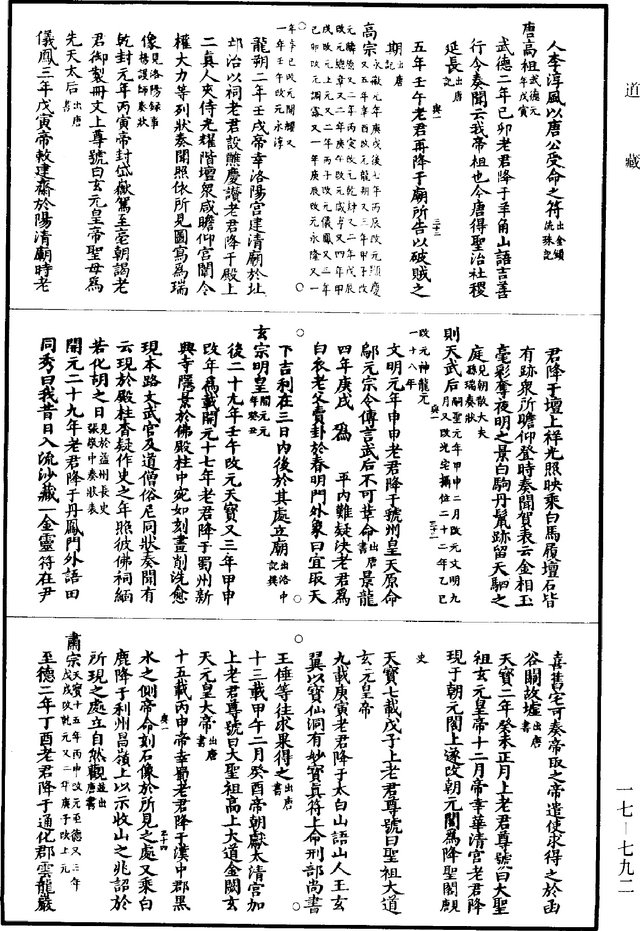 道藏
人李淳風以唐公受命之符出金鎖流珠記
唐高祖武德元年戊寅
武德二年己卯老君降于羊角山語吉善
行令奏聞云我帝祖也今唐得聖治社稷
延長出唐記
五年壬午老君再降于廟所告以破賊之
期出唐記
高宗永徽元年庚戌後七年丙辰改元顯慶
又五年辛酉改元龍朔又三年甲子改
元麟德又二年丙寅改元乾封又二年戊辰
改元總章又二年庚午改元咸亨又四年甲
戌改元上元又二年丙子改元儀鳳又三年
己卯改元調露又一年庚辰改元永隆又一
年辛巳改元開耀又
一年壬午改元永淳
龍朔二年壬戌帝幸洛陽宮建清廟於北
邙治以祠老君設醮慶讚老君降于殿上
二真人夾侍光耀階壇衆咸瞻仰宮闈令
權大力等列狀奏聞照依所見圖寫為瑞
像見洛陽録事楊護師奏狀
乾封元年丙寅帝封岱嶽駕至亳朝謁老
君御製冊文上尊號曰玄元皇帝聖母為
先天太后出唐書
儀鳳三年戊寅帝敕建齋於陽清廟時老
君降于壇上祥光照映乘白馬履壇石皆
有跡衆所瞻仰登時奏聞賀表云金相玉
毫彩奪夜明之景白駒丹鬣跡留天駟之
庭見朝散大夫孫瑞奏狀
則天武后嗣聖元年甲申二月改元文明九
月又改光宅攝位二十二年乙巳
改元神龍元
一十八年
文明元年甲申老君降于虢州皇天原命
鄔元宗令傳言武后不可革命出唐書景龍
四年庚戌為平內難疑決老君為
白衣老父賣卦於春明門外象曰宜取天
下吉利在三日内後於其處立廟出洛中記異
玄宗明皇開元元年癸丑
後二十九年壬午改元天寶又三年甲申
改年為載開元十七年老君降于蜀州新
興寺隱景於佛殿柱中宛如刻畫削洗愈
現本路文武官及道僧俗尼同狀奏聞有
云現於殿柱杳疑作史之年照彼佛祠緬
若化胡之日見於益州長史張敬中奏狀表
開元二十九年老君降于丹鳳門外語田
同秀曰我昔日入流沙藏一金靈符在尹
喜舊宅可奏帝取之帝遣使求得之於函
谷關故墟出唐書
天寶二年癸未正月上老君尊號曰大聖
祖玄元皇帝十二月帝幸華清宮老君降
現于朝元閣上遂改朝元閣為降聖閣覩
史
天寶七載戊子上老君尊號曰聖祖大道
玄元皇帝
九載庚寅老君降于太白山語山人王玄
翼以寶仙洞有妙寶真符上命刑部尚書
王倕等往求果得之出唐書
十三載甲午二月癸酉帝朝獻太清宮加
上老君尊號曰大聖祖高上大道金闕玄
天元皇大帝出唐書
十五載丙申帝幸蜀老君降于漢中郡黑
水之側帝命刻石像於所見之處又乘白
鹿降于利州昌嶺上以示收山之兆詔於
所現之處立自然觀並出唐書
肅宗天寶十五年丙申改元至德又三年
戊戌改乾元又二年庚子改上元
至德二年丁酉老君降于通化郡雲龍巖
一七—七九二